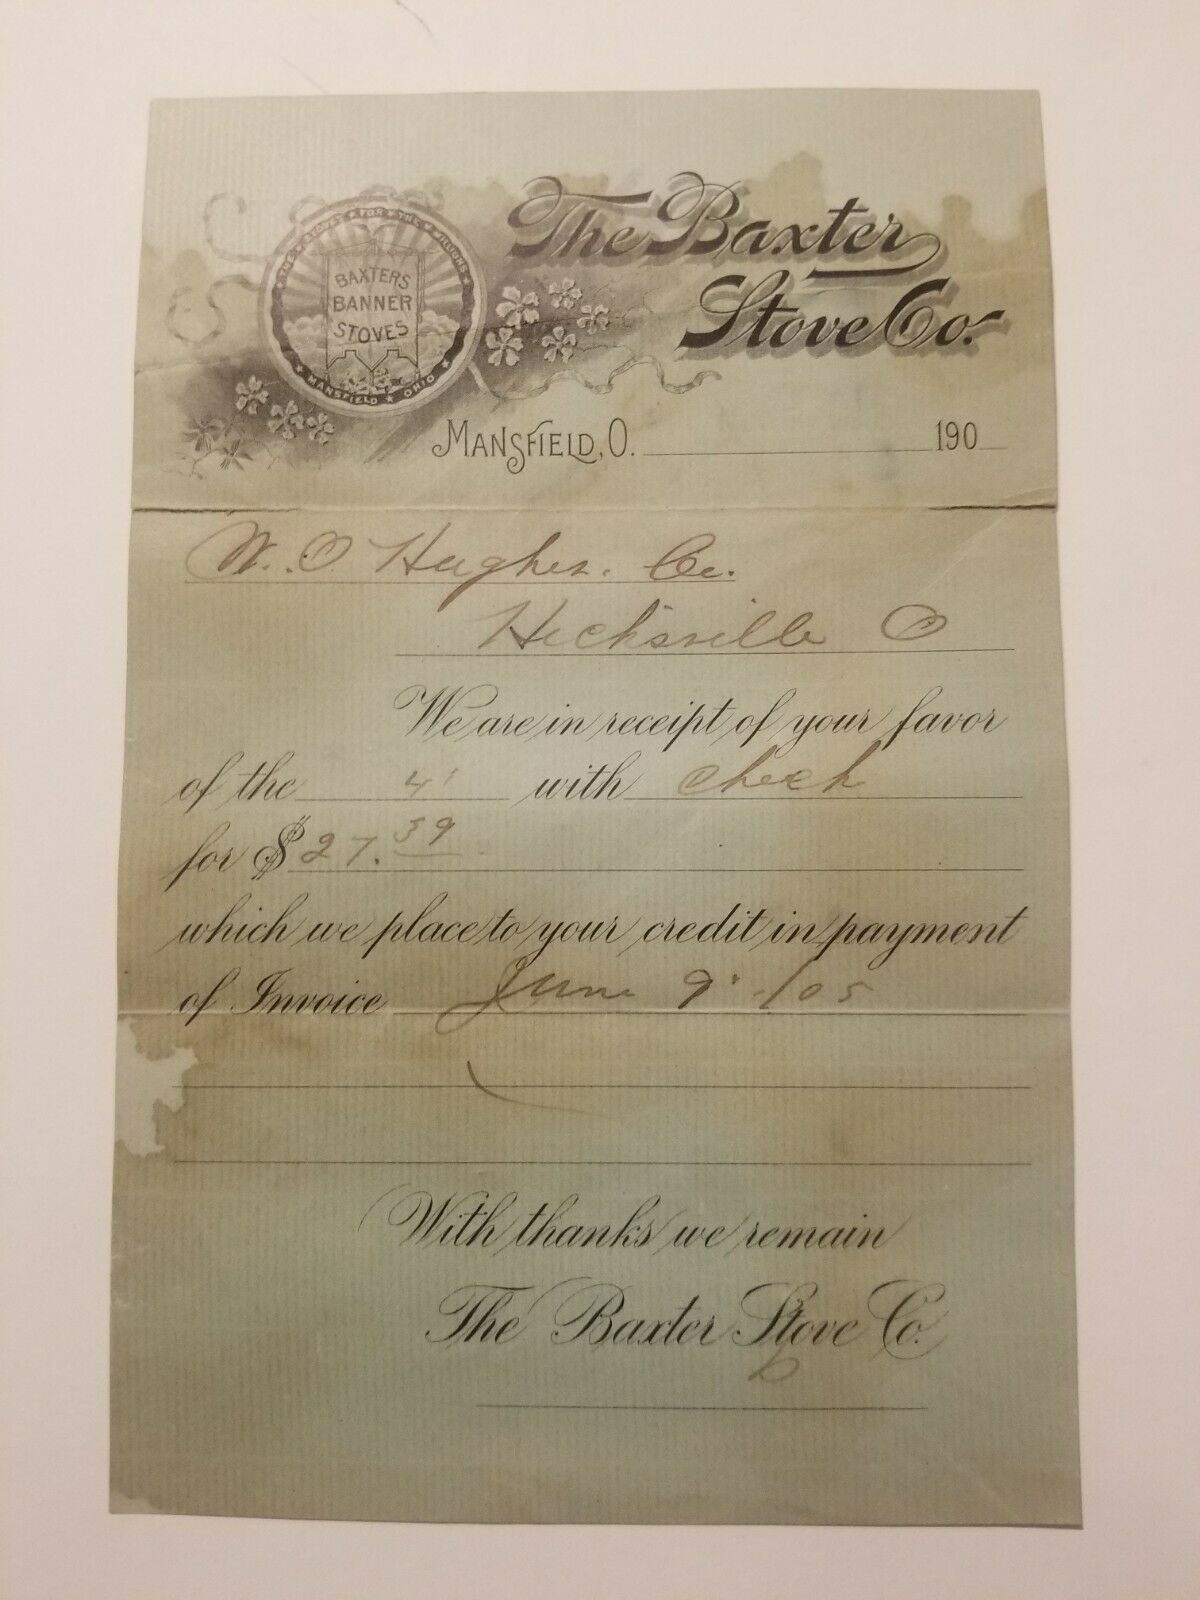 THE STOVES FOR THE MILLIONS
BAXTERS
BANNER
STOVES
MANSFIELD OHIO
The Baxter
Stove Co.
MANSFIELD, O. 190
W. O. Hughes. Co.
Hicksville O
We are in receipt of your favor
of the 4' with check
for $ 27.39
which we place to your credit in payment
of Invoice June 9" -/05
With thanks we remain
The Baxter Stove Co.
b